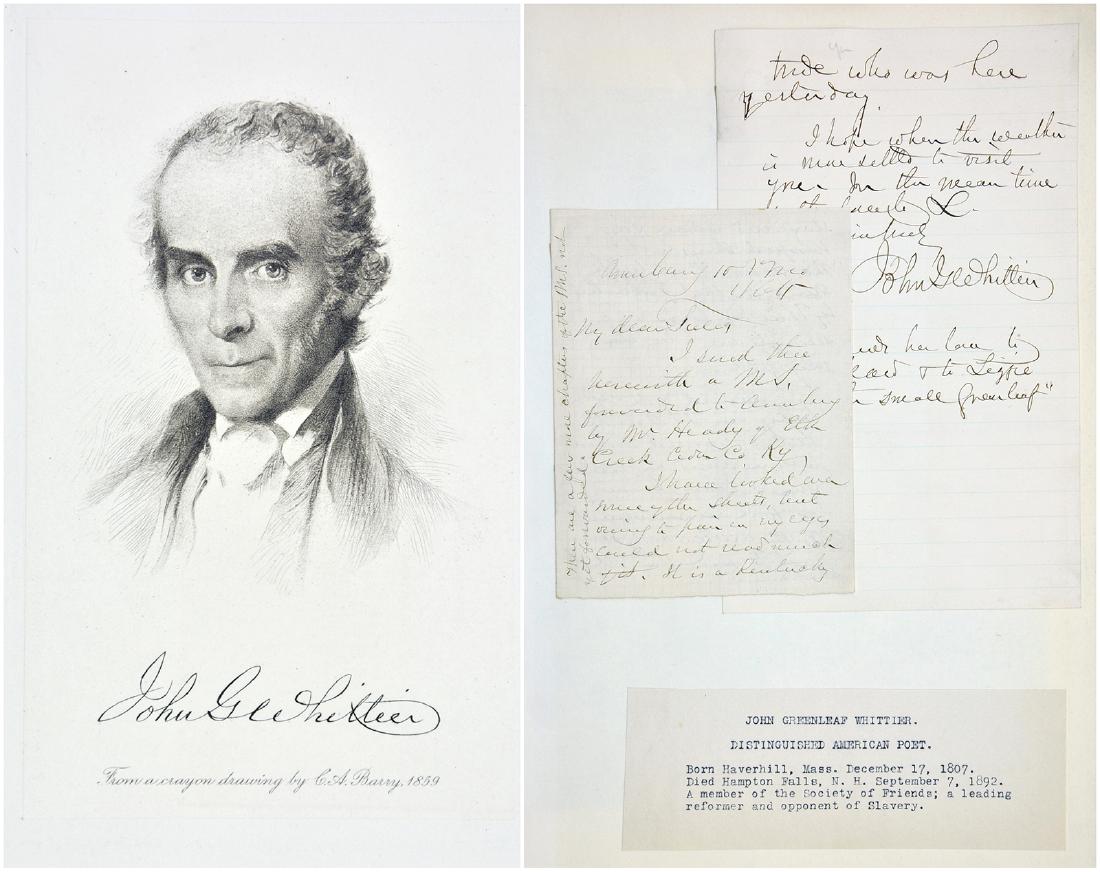 John G Whittier
From a crayon drawing by C. A. Barry, 1859
tude who was here
yesterday.
I hope when the weather
is more settled to visit
you. In the mean time
John G Whittier
her love to
& to Lizzie
small Greenleaf"
10
My dear
I send thee
herewith a M.S.
forwarded to
by Mr. Heady of Elk
Creek Co Ky
I have looked over
some of the sheets, but
owing to pain in my eyes
could not read much
of it. It is a Kentucky
There are a few more chapters of the M.S. not
yet forwarded.
JOHN GREENLEAF WHITTIER.
DISTINGUISHED AMERICAN POET.
Born Haverhill, Mass. December 17, 1807.
Died Hampton Falls, N. H. September 7, 1892.
A member of the Society of Friends; a leading
reformer and opponent of Slavery.